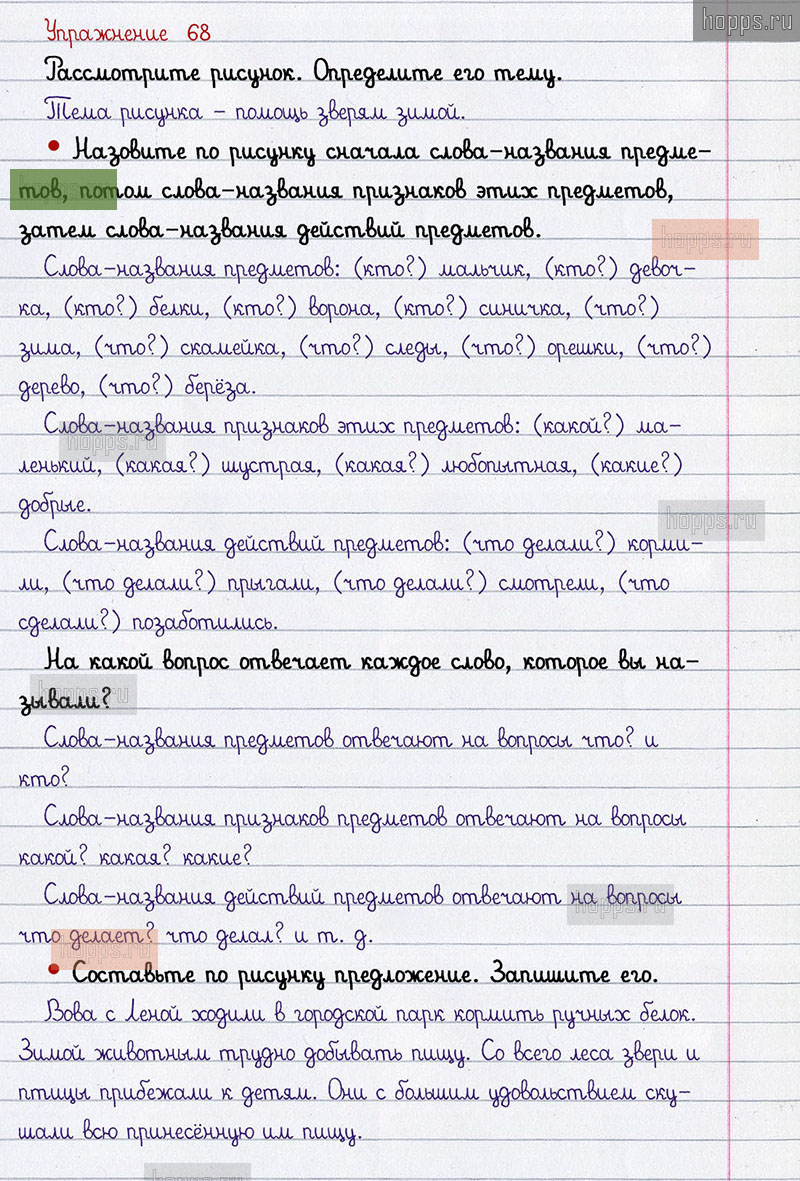 hopps.ru
Упражнение 68
Рассмотрите рисунок. Определите его тему.
Тема рисунка – помощь зверям зимой.
• Назовите по рисунку сначала слова-названия предме-
тов, потом слова-названия признаков этих предметов,
затем слова-названия действий предметов.
hopps.ru
Слова-названия предметов: (кто?) мальчик, (кто?) девоч-
ка, (кто?) белки, (кто?) ворона, (кто?) синичка, (что?)
зима, (что?) скамейка, (что?) следы, (что?) орешки, (что?)
дерево, (что?) берёза.
Слова-названия признаков этих предметов: (какой?) ма-
hopps.ru
ленький, (какая?) шустрая, (какая?) любопытная, (какие?)
добрые.
hopps.ru
Слова-названия действий предметов: (что делали?) корми-
ли, (что делали?) прыгали, (что делали?) смотрели, (что
сделали?) позаботились.
На какой вопрос отвечает каждое слово, которое вы на-
hopps.ru
зывали?
Слова-названия предметов отвечают на вопросы что? и
кто?
Слова-названия признаков предметов отвечают на вопросы
какой? какая? какие?
Слова-названия действий предметов отвечают на вопросы
hopps.ru
что делает? что делал? и т. д.
hopps.ru
• Составьте по рисунку предложение. Запишите его.
Вова с Леной ходили в городской парк кормить ручных белок.
Зимой животным трудно добывать пищу. Со всего леса звери и
птицы прибежали к детям. Они с большим удовольствием ску-
шали всю принесённую им пищу.
hopps.ru